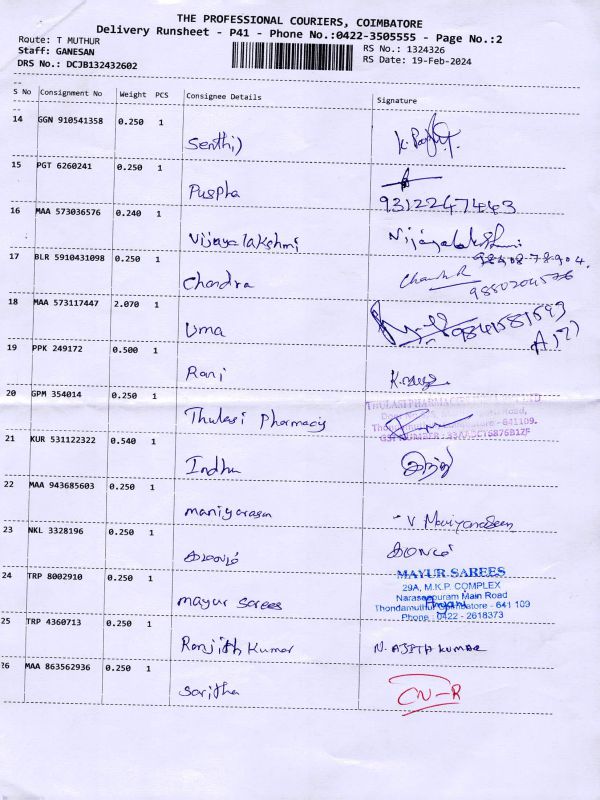 THE PROFESSIONAL COURIERS, COIMBATORE
Delivery Runsheet - P41 - Phone No.:0422-3505555 - Page No.:2
Route: T MUTHUR
Staff: GANESAN
DRS No.: DCJB132432602
RS No.: 1324326
RS Date: 19-Feb-2024
S No Consignment No Weight PCS Consignee Details Signature
14 GGN 910541358 0.250 1
Senthil
15 PGT 6260241 0.250 1
Puspha
9312247443
16 MAA 573036576 0.240 1
Vijayalakshmi Vijayalakshmi
17 BLR 5910431098 0.250 1
Chandra
18 MAA 573117447 2.070 1
Uma
19 PPK 249172 0.500 1
Rani
20 GPM 354014 0.250 1
Thulasi Pharmacy
21 KUR 531122322 0.540 1
Indhu இந்து
22 MAA 943685603 0.250 1
maniyarasan
23 NKL 3328196 0.250 1
24 TRP 8002910 0.250 1
mayur sarees
MAYUR SAREES
29A, M.K.P. COMPLEX
Naraseepuram Main Road
Thondamuthur, Coimbatore - 641 109
Phone : 0422 - 2618373
25 TRP 4360713 0.250 1
Ranjith Kumar N. AJITH KUMAR
26 MAA 863562936 0.250 1
Saritha CN-R